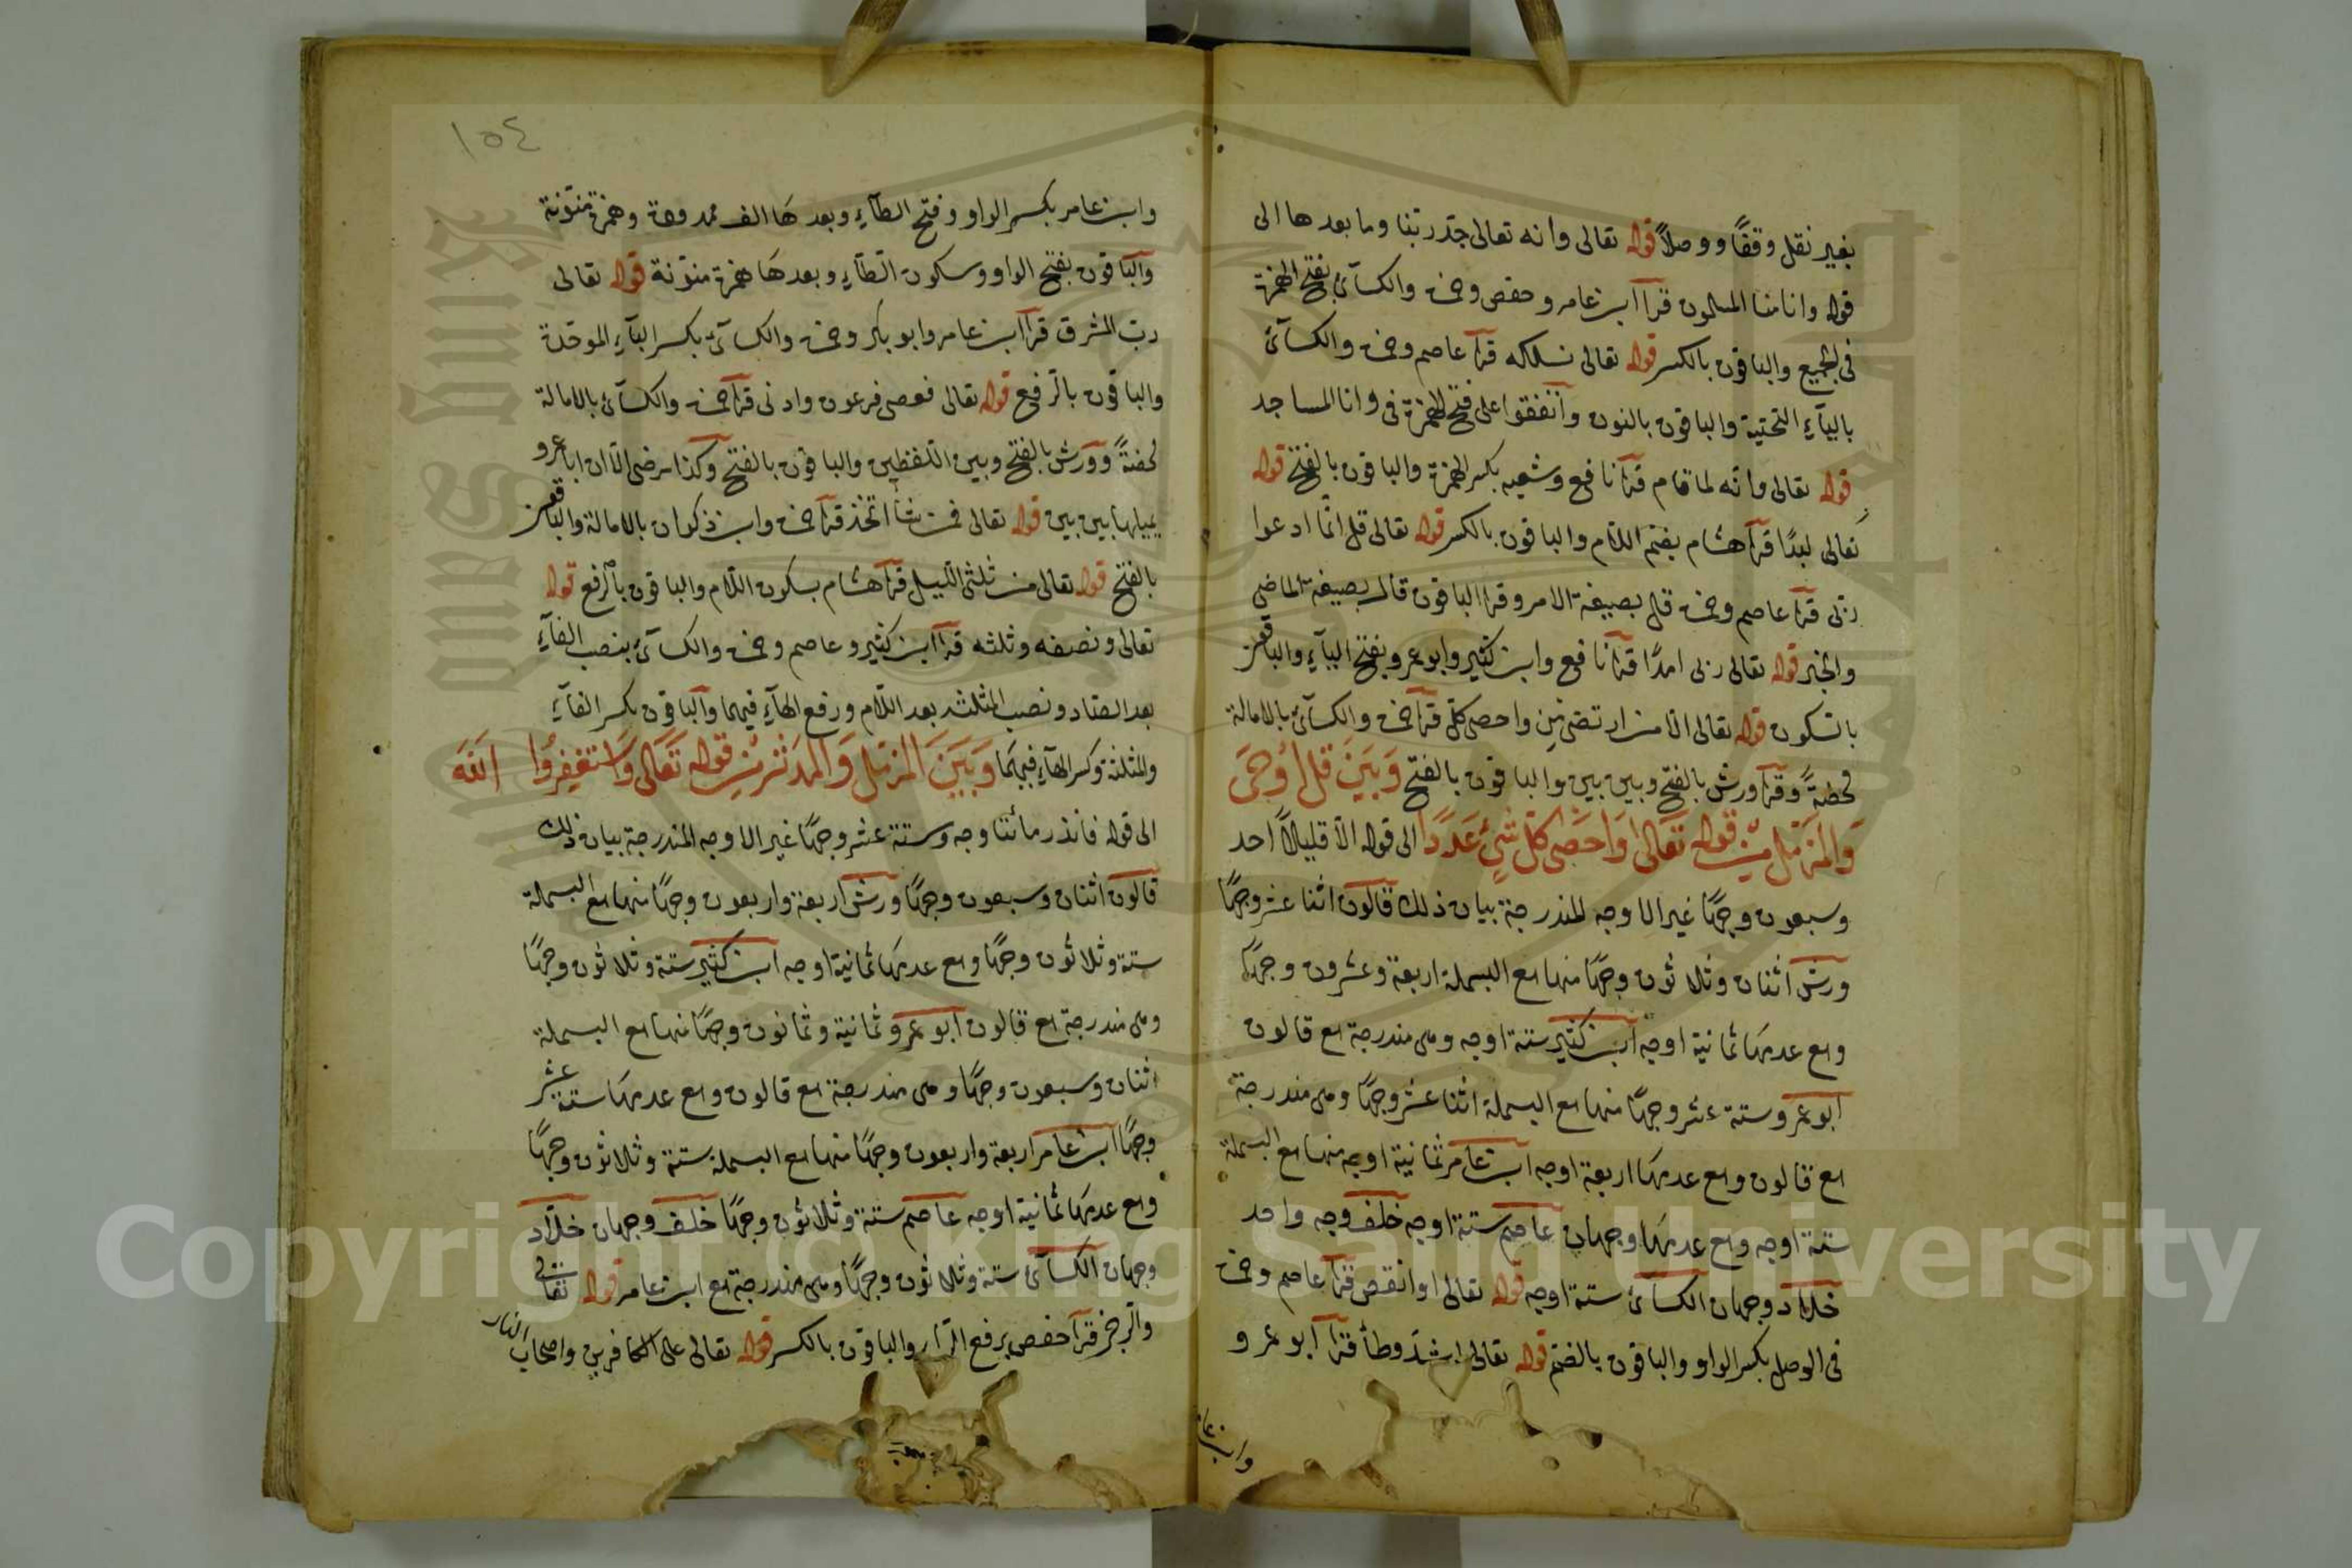 بغير نقل وقفًا ووصلاً قوله تعالى وانه تعالى جدّ ربّنا وما بعدها الى
قوله وانا منا المسلمون قرأ ابن عامر وحفص وحمزة والكسآئي بفتح الهمزة
في الجميع والباقون بالكسر قوله تعالى نسلكه قرأ عاصم وحمزة والكسآئي
باليآءِ التحتية والباقون بالنون واتفقوا على فتح الهمزة في وان المساجد
قوله تعالى وانّه لما قام قرأ نافع وشعبه بكسر الهمزة والباقون بالفتح قوله
تعالى لبدًا قرأ هشام بضم اللام والباقون بالكسر قوله تعالى قل انّما ادعوا
ربّى قرأ عاصم وحمزة قل بصيغة الامر وقرأ الباقون قال بصيغة الماضي
والخبر قوله تعالى ربى امدًا قرأ نافع وابن كثير وابو عمرو بفتح اليآءِ والباقون
بالسكون قوله تعالى الا من ارتضى من واحصى كلّ قرأ حمزة والكسآئي بالامالة
محضةً وقرأ ورش بالفتح وبين بين والباقون بالفتح وَبَيَنَ قل اُوْحِىَ
وَالمُزَّمِّل مِنْ قوله تَعَالى وَاَحْصَى كلّ شَىْءٍ عَدَدًا الى قوله الّا قليلاً احد
وسبعون وجهًا غير الاوجه المندرجة بيان ذلك قالون اثنا عشر وجهًا
ورش اثنان وثلاثون وجهًا منها مع البسملة اربعة وعشرون وجهًا
ومع عدمها ثمانية اوجه ابن كثير ستة اوجه وهى مندرجة مع قالون
ابو عمرو ستة عشر وجهًا منها مع البسملة اثنا عشر وجهًا وهى مندرجة
مع قالون ومع عدمها اربعة اوجه ابن عامر ثمانية اوجه منها مع البسملة
ستة اوجه ومع عدمها وجهان عاصم ستة اوجه خلف وجه واحد
خلاد وجهان الكسآئي ستة اوجه قوله تعالى او انقص قرأ عاصم وحمزة
في الوصل بكسر الواو والباقون بالضم قوله تعالى اشدّ وطأ قرأ ابو عمرو
وابن عا
١٥٤
وابن عامر بكسر الواو وفتح الطآءِ وبعدها الف ممدودة وهمزة منوّنة
والباقون بفتح الواو وسكون الطآءِ وبعدها همزة منوّنة قوله تعالى
ربّ المشرق قرأ ابن عامر وابو بكر وحمزة والكسآئي بكسر البآءِ الموحّدة
والباقون بالرّفع قوله تعالى فعصى فرعون وادنى قرأ حمزة والكسآئي بالامالة
محضةً وورش بالفتح وبين اللفظين والباقون بالفتح وكذا مرضى الّا ان ابا عمرو
يميلها بين بين قوله تعالى فمن شآء اتخذ قرأ حمزة وابن ذكوان بالامالة والباقون
بالفتح قوله تعالى من ثلثى اللّيل قرأ هشام بسكون اللام والباقون بالرفع قوله
تعالى ونصفه وثلثه قرأ ابن كثير وعاصم وحمزة والكسآئي بنصب الفآءِ
بعد الصّاد ونصب المثلثه بعد اللّام ورفع الهآءِ فيهما والباقون بكسر الفآءِ
والمثلثة وكسر الهآءِ فيهمَا وَبَيَنَ المُزّمّل وَالمُدَّثر مِنْ قوله تَعَالى وَاسْتَغفِرُوا اللّٰهَ
الى قوله فانذر مائتا وجه وستة عشر وجهًا غير الاوجه المندرجة بيان ذلك
قالون اثنان وسبعون وجهًا ورش اربعة واربعون وجهًا منها مع البسملة
ستة وثلاثون وجهًا ومع عدمها ثمانية اوجه ابن كثير ستة وثلاثون وجهًا
وهى مندرجة مع قالون ابو عمرو ثمانية وثمانون وجهًا منها مع البسملة
اثنان وسبعون وجهًا وهى مندرجة مع قالون ومع عدمها ستة عشر
وجهًا ابن عامر اربعة واربعون وجهًا منها مع البسملة ستة وثلاثون وجهًا
ومع عدمها ثمانية اوجه عاصم ستة وثلاثون وجهًا خلف وجهان خلّاد
وجهان الكسآئي ستة وثلاثون وجهًا وهى مندرجة مع ابن عامر قوله تعالى
والرّجز قرأ حفص برفع الرّآءِ والباقون بالكسر قوله تعالى على الكافرين واصحاب النار
King Saud University
Copyright © King Saud University